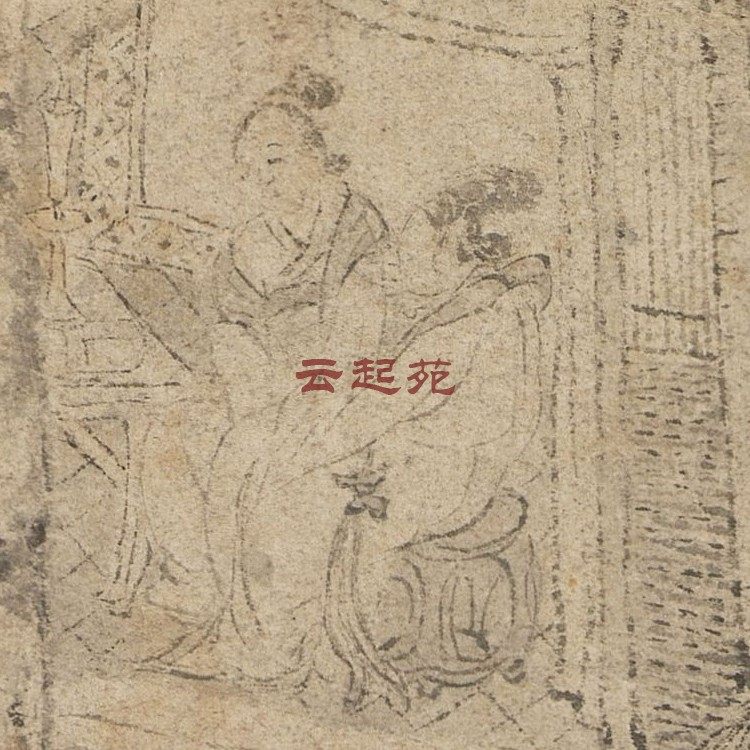 云起苑